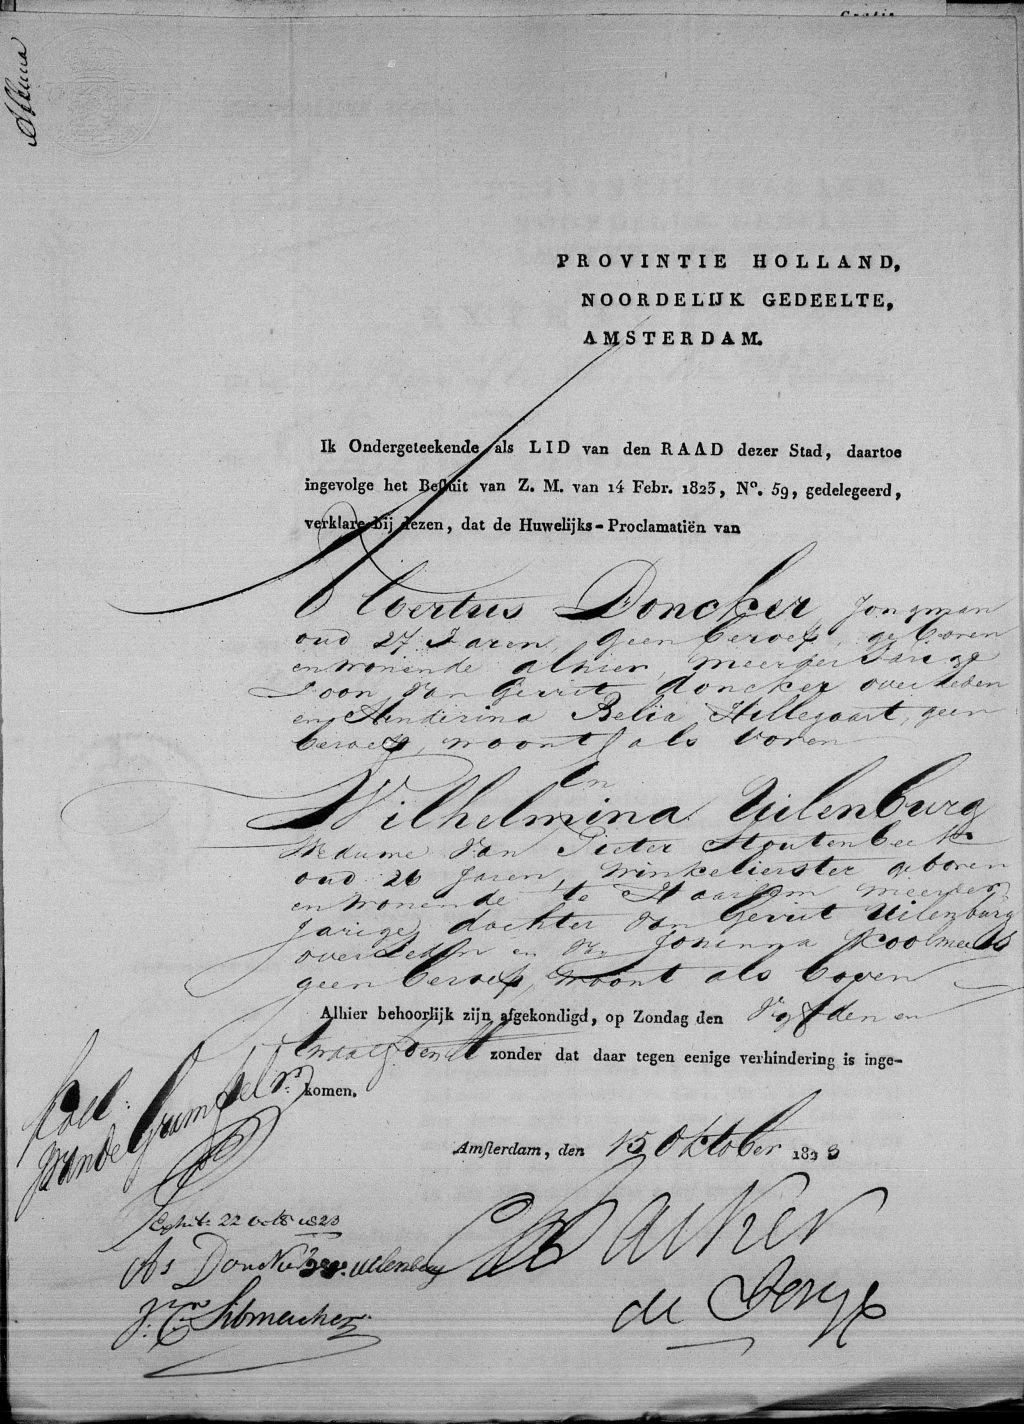 PROVINTIE HOLLAND,
NOORDELIJK GEDEELTE,
AMSTERDAM.
Ik Ondergeteekende als LID van den RAAD dezer Stad, daartoe
ingevolge het Besluit van Z. M. van 14 Febr. 1823, No. 59, gedelegeerd,
verklare bij dezen, dat de Huwelijks-Proclamatiën van
Albertus Doncker, Jongman
oud 27 Jaren, geen beroep, geboren
en wonende alhier, meerderjarige
Zoon van Gerrit Doncker overleden
en Hillegaart, geen
beroep, woont als voren
En
Wilhelmina Uilenburg
Weduwe van Pieter Stoutenbeek
oud 26 Jaren, winkelierster geboren
en wonende te Haarlem meerder
jarige dochter van Gerrit Uilenburg
overleden en van Johanna Koolmees
geen beroep, woont als boven
Alhier behoorlijk zijn afgekondigd, op Zondag den Vyfden en
twaalfden dr zonder dat daar tegen eenige verhindering is inge-
komen.
Amsterdam, den 15 Oktober 1823
22 octb 1823
As Doncker Uilenburg